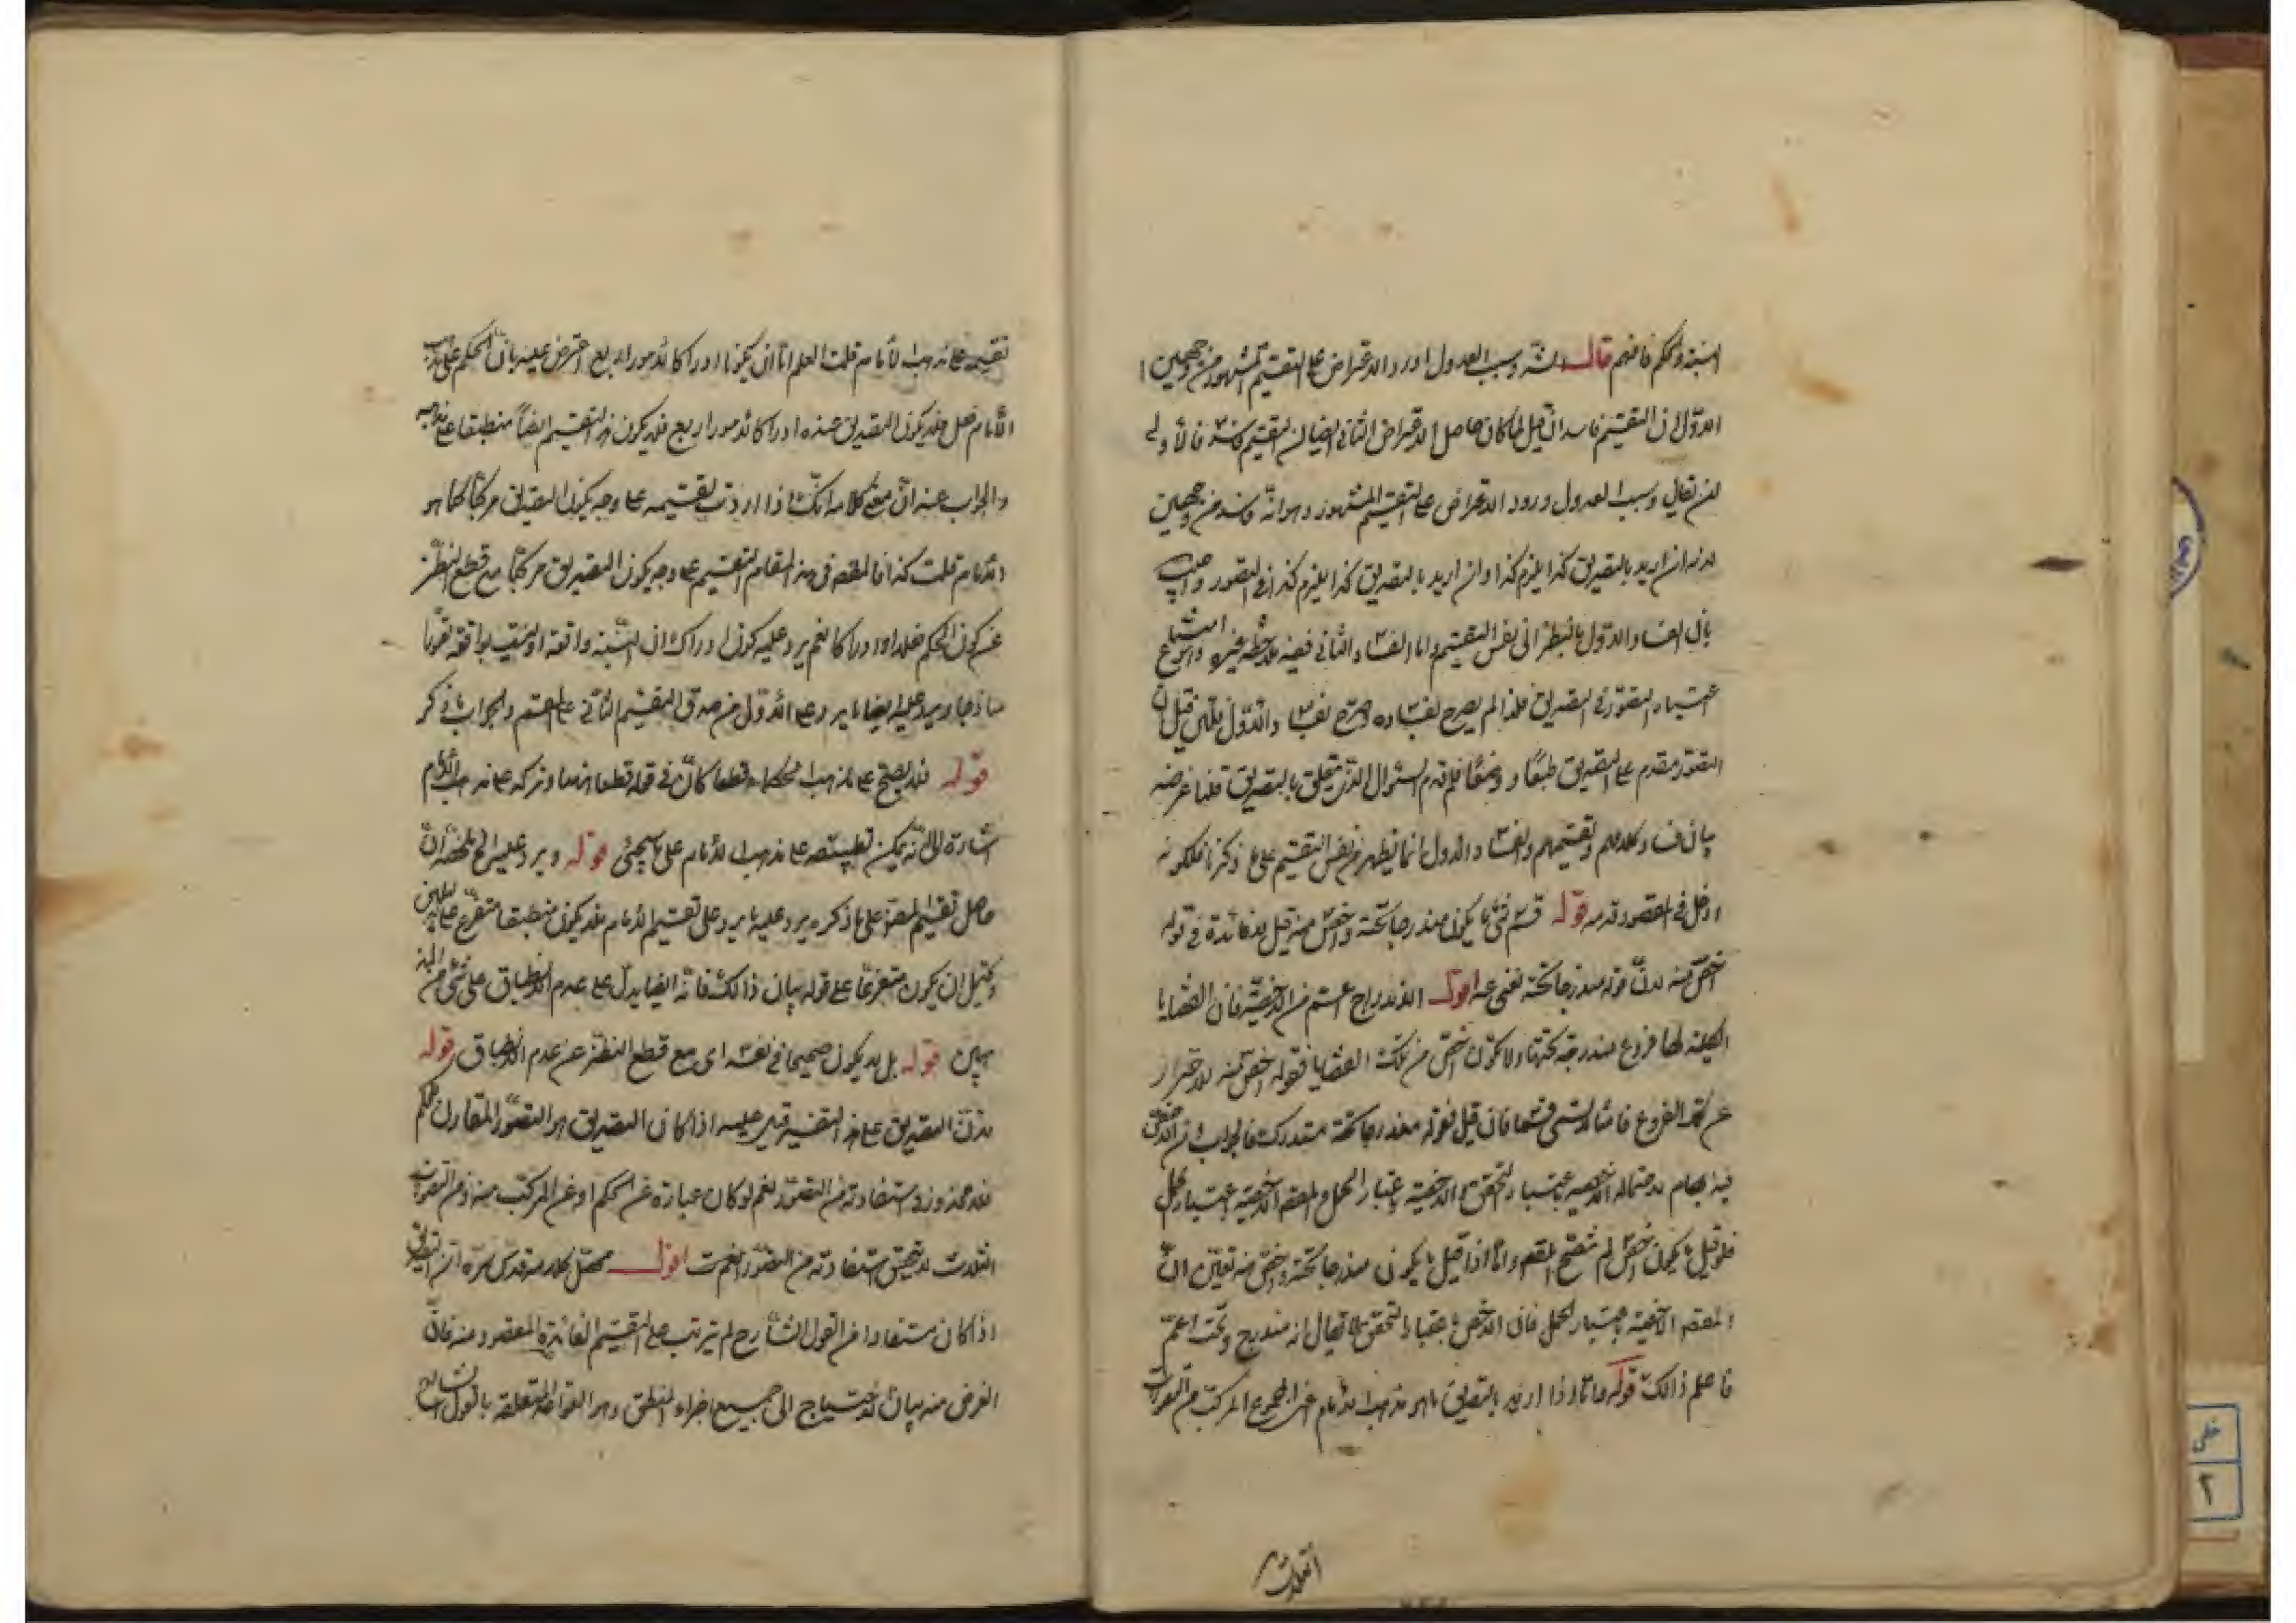 النسبة والحكم فافهم قال الش وسبب العدول ورود الاعتراض على التقسيم المشهور من وجهين
الاول ان التقسيم فاسد ان قيل لما كان حاصل الاعتراض الثاني ايضا ان التقسيم فاسد فالأولى
ان يقال وسبب العدول ورود الاعتراض على التقسيم المشهور وهو انه فاسد من وجهين
لانه ان اريد بالتصديق كذا يلزم كذا وان اريد بالتصديق كذا يلزم كذا في التصور واجيب
بان الفساد الاول بالنظر الى نفس التقسيم واما الفساد الثاني ففيه ملاحظة غيره وامتناع
اعتبار التصور في التصديق فلذا لم يصرح بفساده وصرح بفساد الاول فان قيل ان
التصور مقدم على التصديق طبعا ووضعا فلم قدم السؤال الذي يتعلق بالتصديق قلنا غرضه
بيان فساد كلامهم وتقسيمهم والفساد الاول انما يظهر من نفس التقسيم على ما ذكرنا فلكونه
ادخل في المقصود قدمه قوله قسم الشئ ما يكون مندرجا تحته واخص منه قيل لا فائدة في قوله
اخص منه لان قوله مندرجا تحته يغني عنه اقول الاندراج اعم من الاخصية فان القضايا
الكلية لها فروع مندرجة تحتها ولا تكون اخص من تلك القضايا فقوله اخص منه للاحتراز
عن تلك الفروع فانها لا تسمى قسما فان قيل فقوله مندرجا تحته مستدرك فالجواب ان الاخص
فيه ابهام لاحتماله الاخصية باعتبار التحقق والاخصية باعتبار الحمل والمقصود الاخصية باعتبار الحمل
فلو قيل ما يكون اخص لم يتضح المقصود واما اذا قيل ما يكون مندرجا تحته واخص منه تعين ان
المقصود الاخصية باعتبار الحمل فان الاخص باعتبار التحقق لا يقال انه مندرج تحت اعم
فاعلم ذالك قوله واما اذا اريد بالتصديق ما هو مذهب الامام اعني المجموع المركب من التصورات
الثلاث
تقسيمه على مذهب الأمام قلت العلم اما ان يكون ادراكا لامور اربع اعترض عليه بان الحكم على مذهب
الأمام فعل فلا يكون التصديق عنده ادراكا لامور اربع فلا يكون هذا التقسيم ايضا منطبقا على مذهبه
والجواب عنه ان معنى كلامه انك اذا اردت تقسيمه على وجه يكون التصديق مركبا كما هو
مذهب الامام قلت كذا فالمقصود في هذا المقام التقسيم على وجه يكون التصديق مركبا مع قطع النظر
عن كون الحكم فعلا او ادراكا نعم يرد عليه كون ادراك ان النسبة واقعة او ليست بواقعة تصورا
ساذجا ويرد عليه ايضا ما يرد على الاول من صدق القسم الثاني على القسم والجواب ما ذكر
قوله فلا يصح على مذهب الحكماء قطعا كان في قوله قطعا هنا وتركه على مذهب الأمام
اشارة الى انه يمكن تطبيقه على مذهب الامام على ما سيجئ قوله ويرد عليه الخ ملخصه ان
حاصل تقسيم المصنف على ما ذكره يرد عليه ما يرد على تقسيم الامام فلا يكون منطبقا متفرع على
ويحتمل ان يكون متفرعا على قوله بيان ذالك فانه ايضا يدل على عدم الانطباق على شئ من المذ
هبين قوله بل لا يكون صحيحا في نفسه اى مع قطع النظر عن عدم الانطباق قوله
لان التصديق على هذا التفسير قيل عليه اذا كان التصديق هو التصور المقارن للحكم
فلا محذور في استفادته من التصور نعم لو كان عبارة عن الحكم او عن المركب منه ومن التصورات
الثلاث لا يتحقق استفادته من التصور انتهت اقول محصل كلامه قدس سره ان التصديق
اذا كان مستفادا من القول الشارح لم يترتب على التقسيم الفائدة المقصود منه فان
الغرض منه بيان الاحتياج الى جميع اجزاء المنطق وهو القواعد المتعلقة بالقول الشارح
خطی
۲